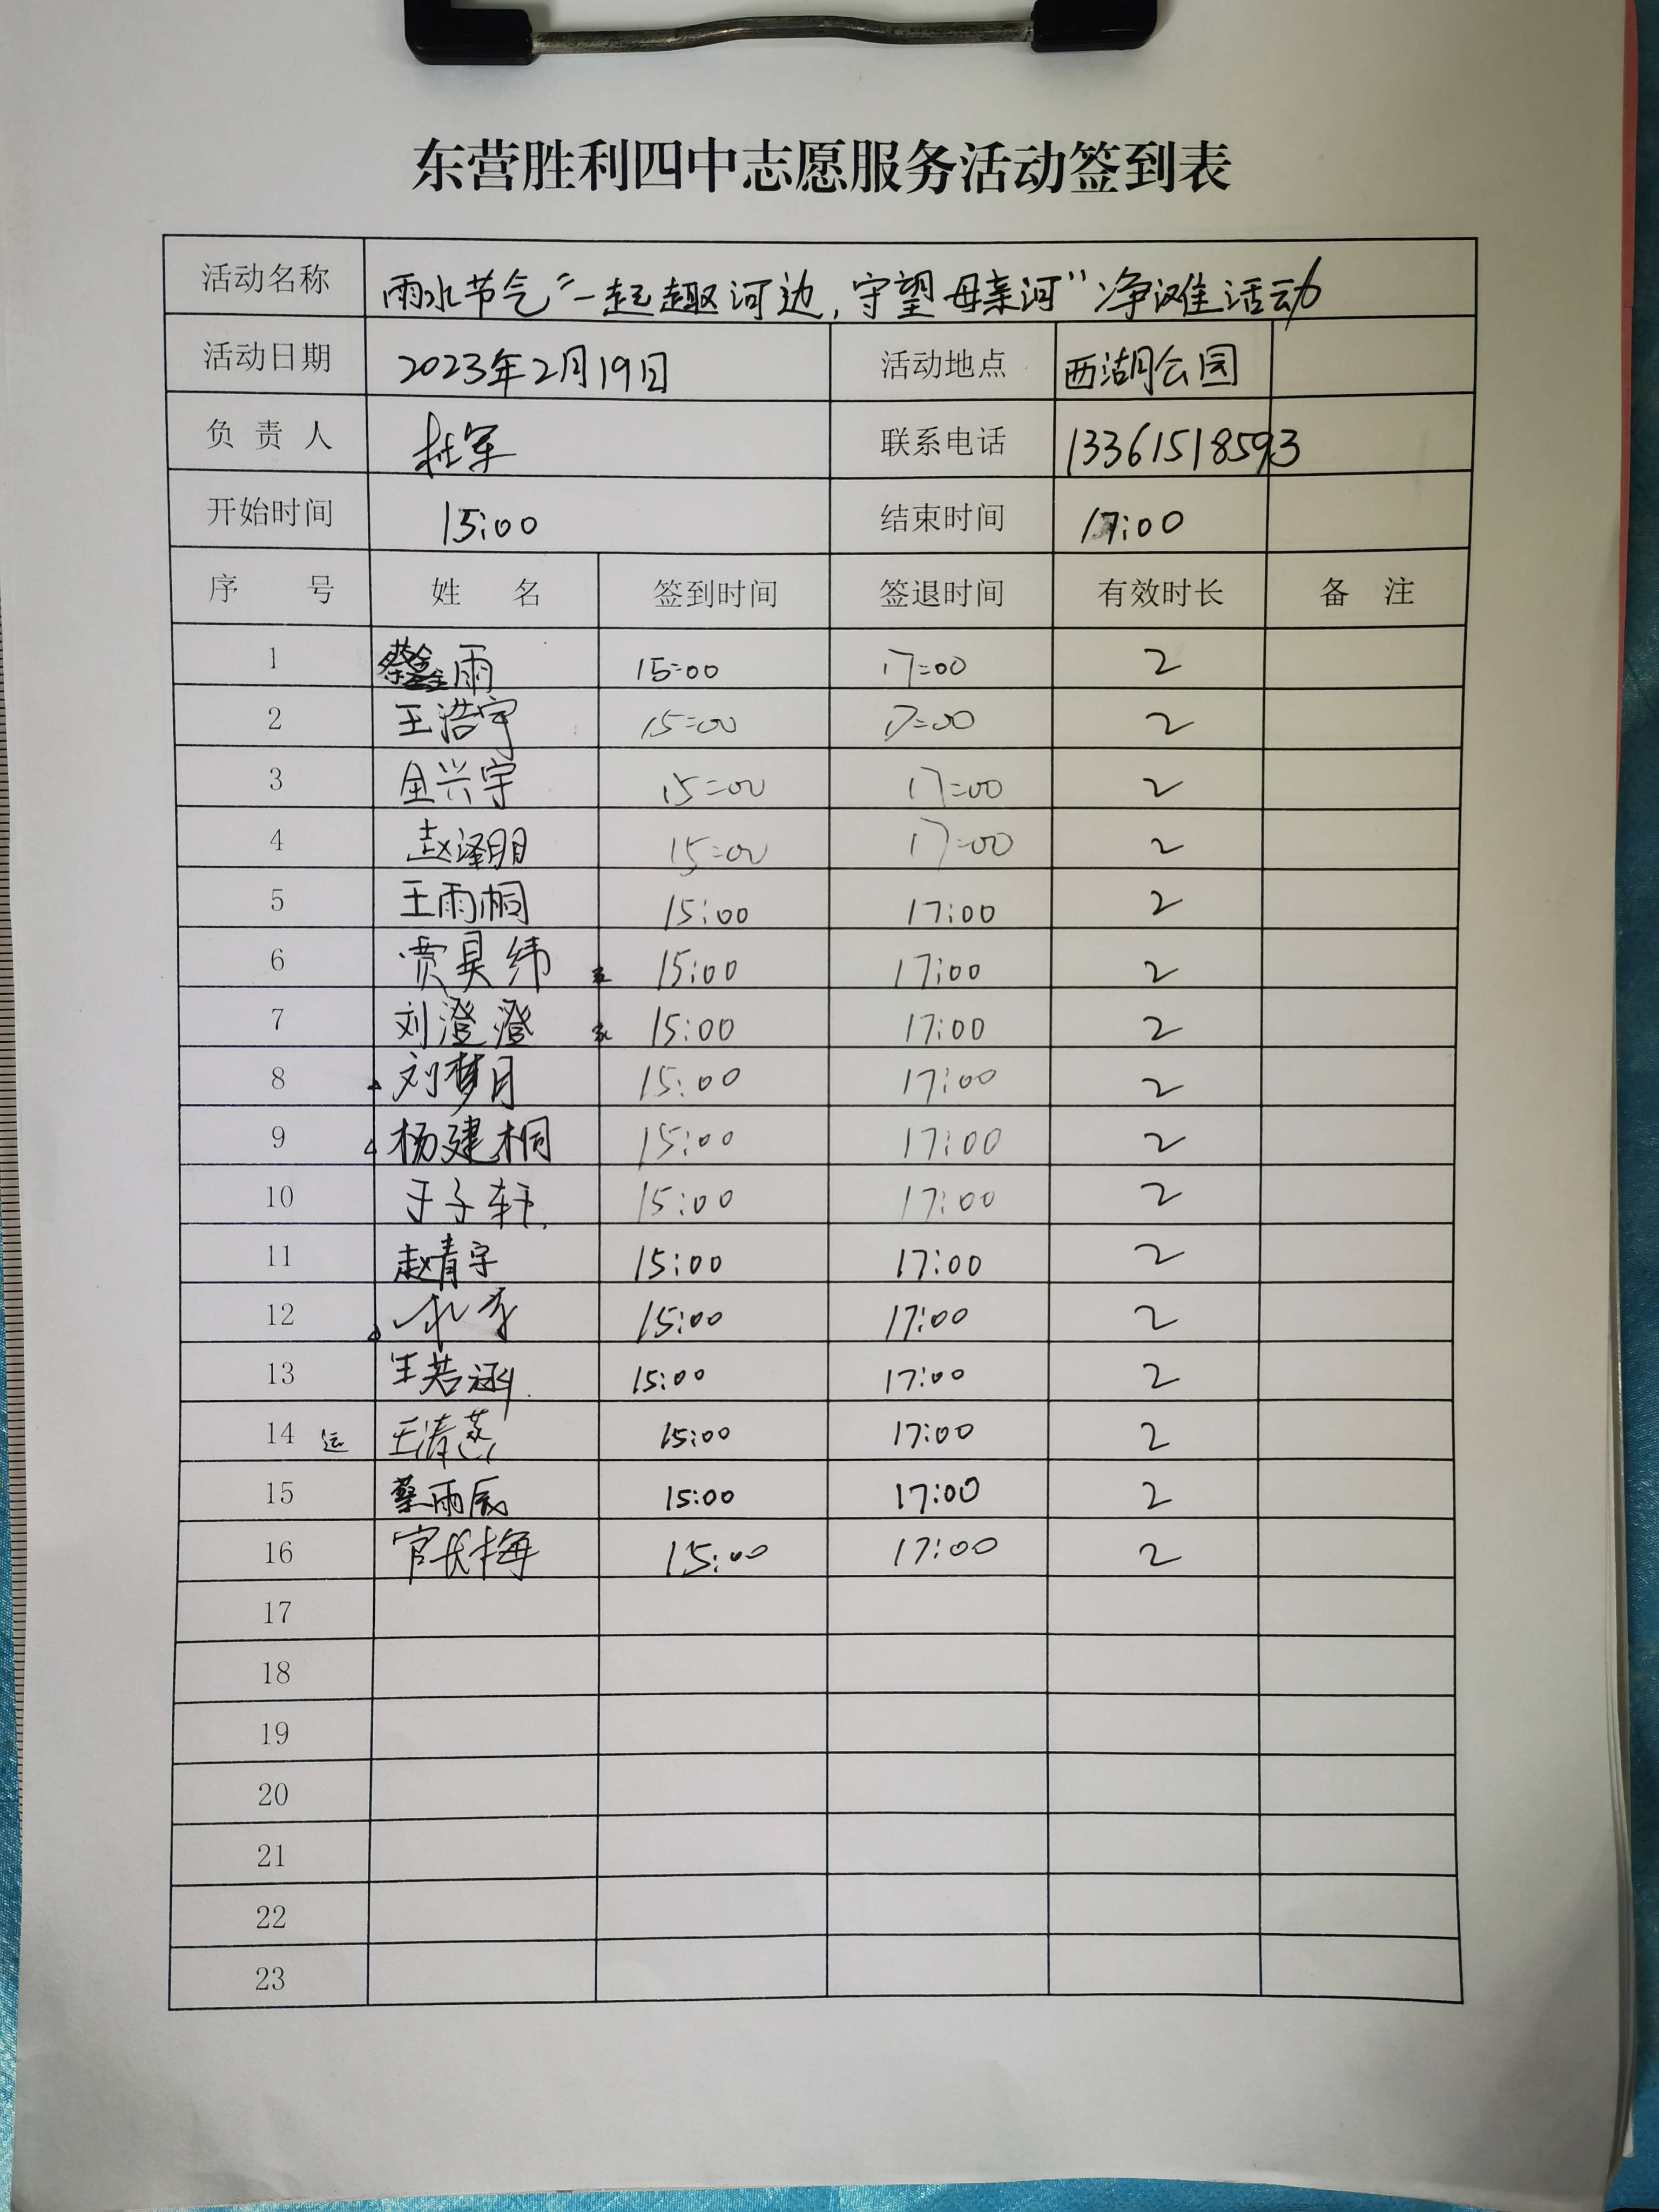 东营胜利四中志愿服务活动签到表
活动名称 雨水节气“一起趣河边,守望母亲河”净滩活动
活动日期 2023年2月19日 活动地点 西湖公园
负责人 杜军 联系电话 13361518593
开始时间 15:00 结束时间 17:00
序号 姓名 签到时间 签退时间 有效时长 备注
1 蔡鑫雨 15:00 17:00 2
2 王浩宇 15:00 17:00 2
3 兴宇 15:00 17:00 2
4 赵泽明 15:00 17:00 2
5 王雨桐 15:00 17:00 2
6 贾昊纬 15:00 17:00 2
7 刘澄澄 15:00 17:00 2
8 刘梦月 15:00 17:00 2
9 杨建桐 15:00 17:00 2
10 于子轩 15:00 17:00 2
11 赵青宇 15:00 17:00 2
12 15:00 17:00 2
13 王若涵 15:00 17:00 2
14 运 王清燕 15:00 17:00 2
15 蔡雨辰 15:00 17:00 2
16 官长梅 15:00 17:00 2
17
18
19
20
21
22
23